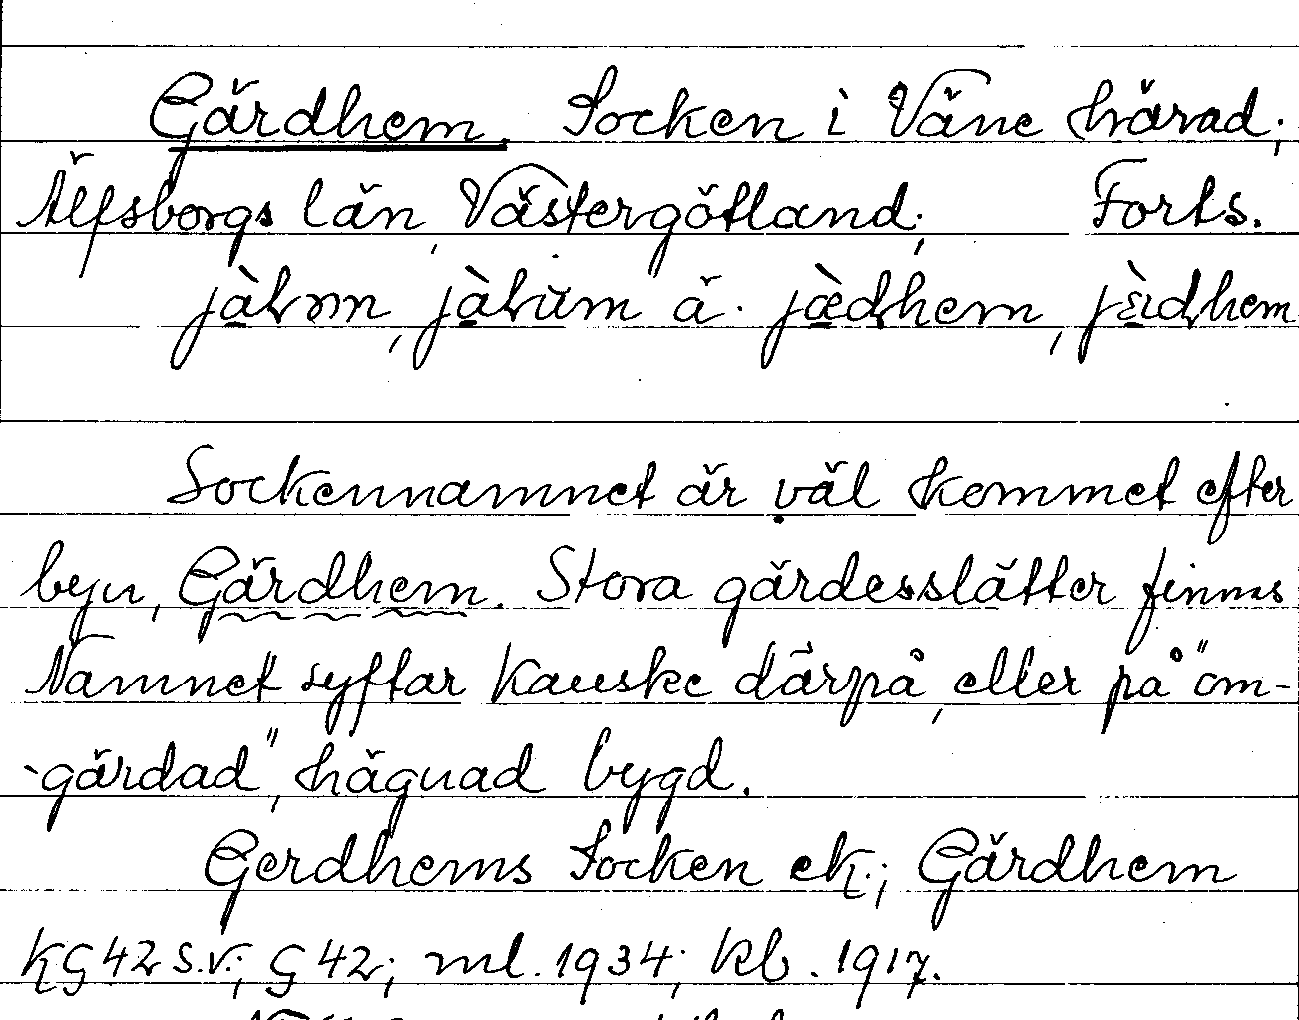 Gärdhem. Socken i Väne härad;
Älfsborgs län, Västergötland; Forts.
jàlɤm, jàlùm ä. jæ̀dhem, jɛ̀ıdhem
Sockennamnet är väl kommet efter
byn, Gärdhem. Stora gärdesslätter finnes
Namnet syftar kanske därpå, eller på "om-
-gärdad", hägnad bygd.
Gerdhems Socken ek.; Gärdhem
KG 42 s.v.; G 42; ml. 1934; kb. 1917.